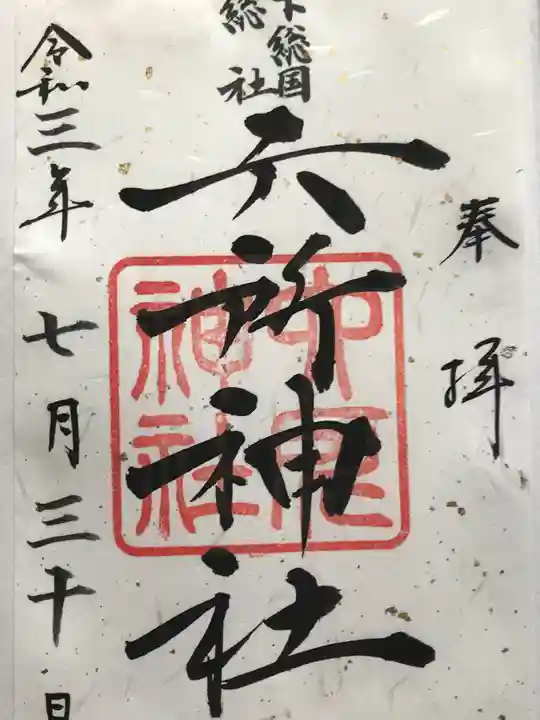 奉拝
下総国
総社
六所神社
令和三年七月三十日
神社